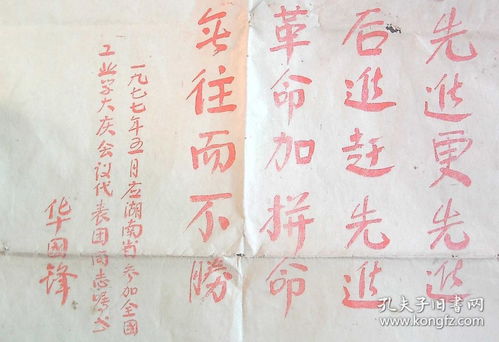 先進更先進
后進赶先進
革命加拼命
无往而不勝
一九七七年五月应湖南省参加全国
工业学大庆会议代表团同志嘱书
华国锋
孔夫子旧书网
www.kongfz.com